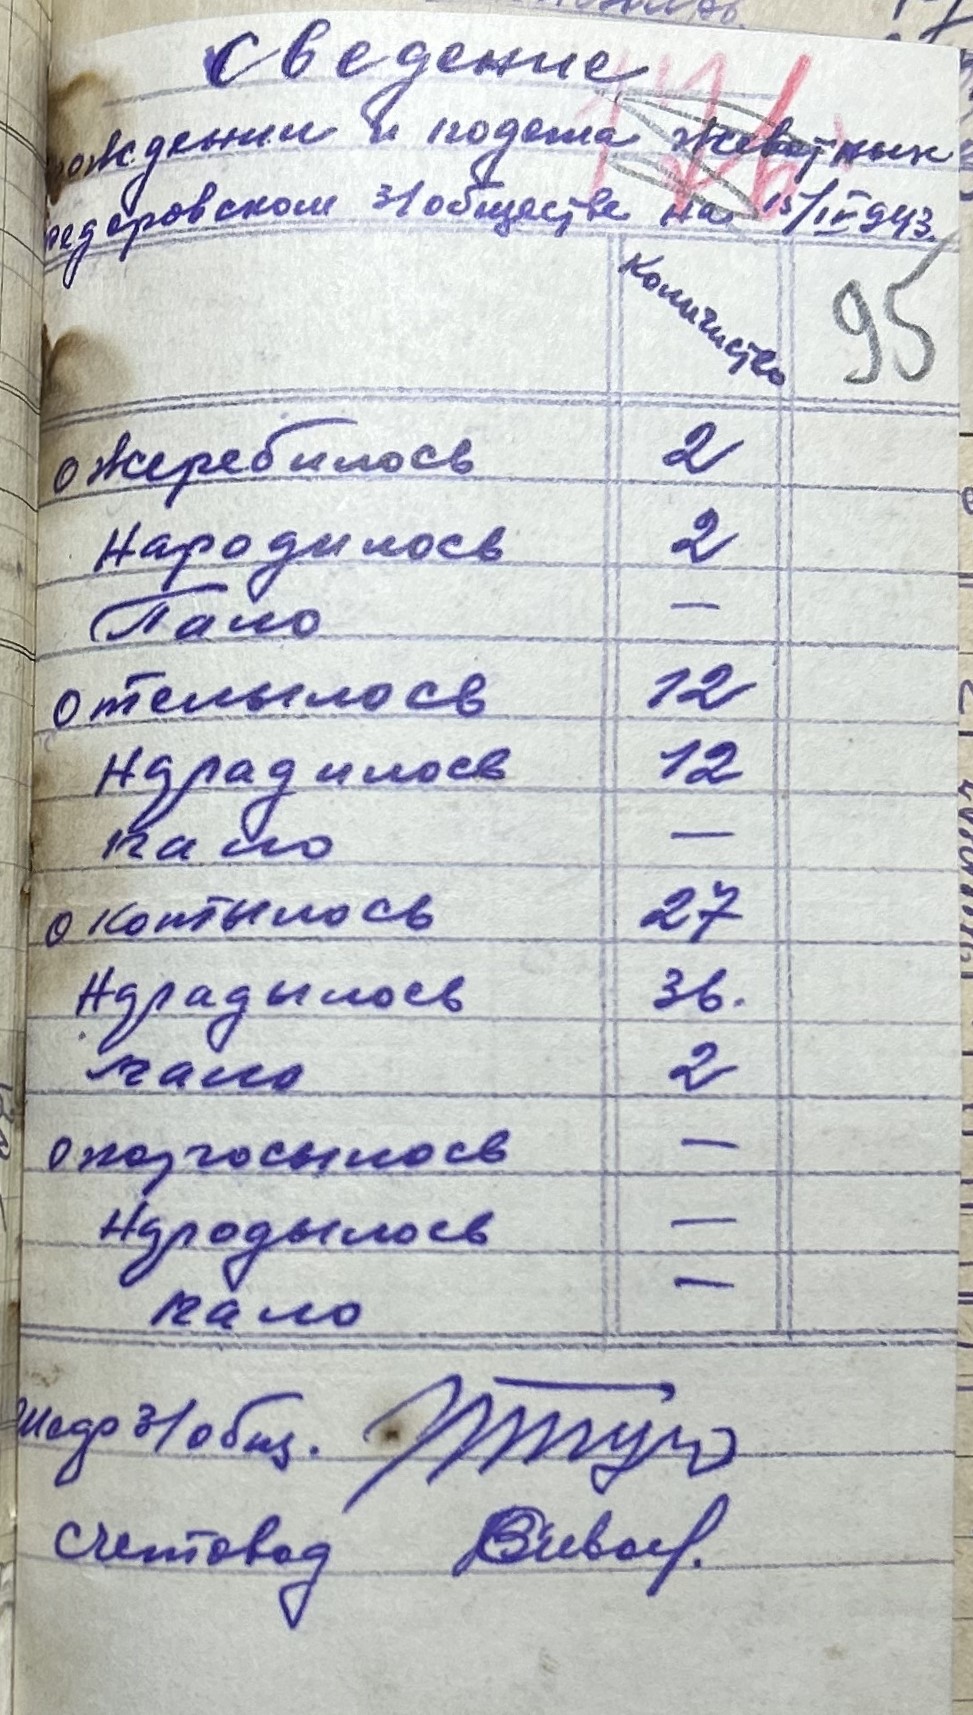 Сведение
рождении и подежа животных
Федеровском з/обществе на 15/IV 943.
Количиство
95
ожеребилось 2
Народилось 2
Пало —
отелылось 12
Нарадилось 12
пало —
окотылось 27
Нарадылось 36.
пало 2
опоросылось —
Народылось —
пало —
з/общ.
счетовод